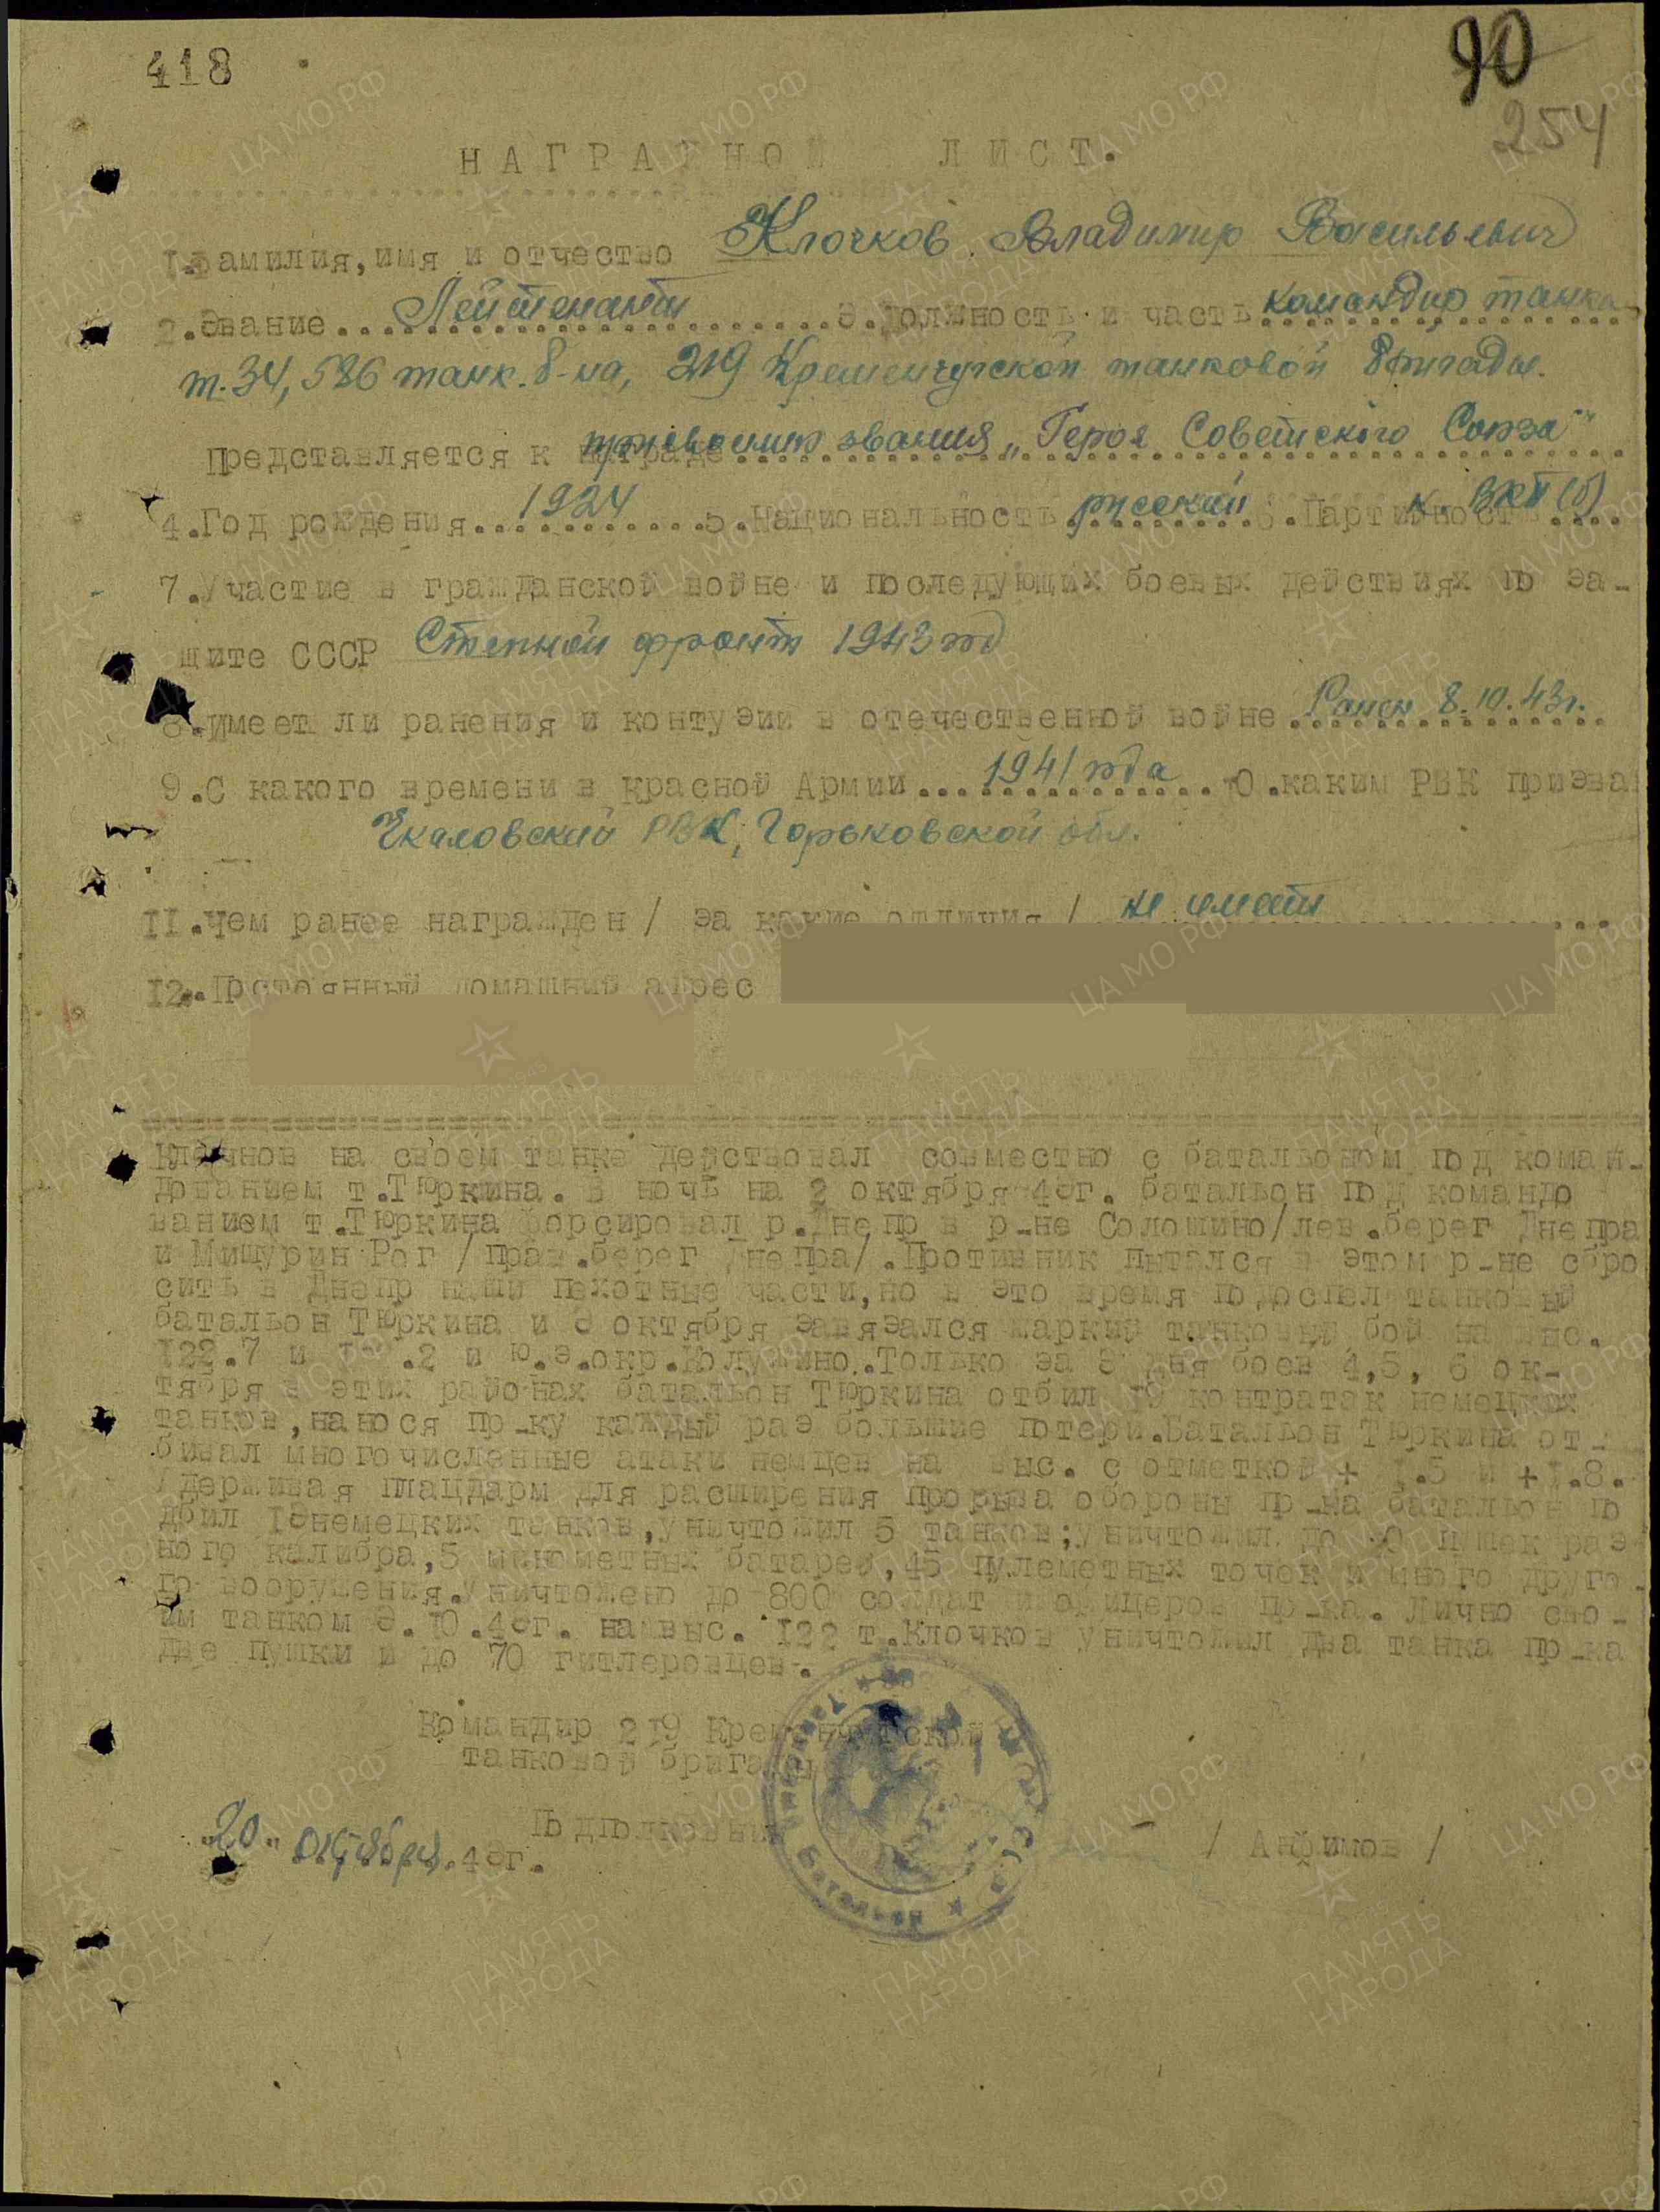 418
90
254
НАГРАДНОЙ ЛИСТ.
I.Фамилия,имя и отчество Клочков Владимир Васильевич
2.Звание....Лейтенант....3.Должность и часть командир танка
т.34, 586 танк. б-на, 219 Кременчугской танковой бригады.
Представляется к награде присвоению звания „Героя Советского Союза"
4.Год рождения...1924...5.Национальность русский 6.Партийность к. ВКП(б)
7.Участие в гражданской войне и последующих боевых действиях по за-
щите СССР Степной фронт 1943 год
8.Имеет ли ранения и контузии в отечественной войне Ранен 8.10.43г.
9.С какого времени в Красной Армии...1941 года...10.каким РВК призва
Чкаловский РВК, Горьковской обл.
II.Чем ранее награжден / за какие отличия / не имеет
12.Постоянный домашний адрес
Клочков на своем танке действовал совместно с батальоном под коман-
дованием т.Тюркина. В ночь на 2 октября 43г. батальон под командо
ванием т.Тюркина форсировал р.Днепр в р-не Солошино/лев.берег Днепра
и Мишурин Рог /прав.берег Днепра/.Противник пытался в этом р-не сбро
сить в Днепр наши пехотные части,но в это время подоспел танковый
батальон Тюркина и 3 октября завязался жаркий танковый бой на выс.
122.7 и .2 и ю.з.окр. Только за 3 дня боев 4,5, 6 ок-
тября в этих районах батальон Тюркина отбил 19 контратак немецких
танков,нанося пр-ку каждый раз большие потери.Батальон Тюркина от-
бивал многочисленные атаки немцев на выс. с отметкой + 1.5 и +1.8.
Удерживая плацдарм для расширения прорыва обороны пр-ка батальон по
дбил 13немецких танков,уничтожил 5 танков;уничтожил до пушек раз
ного калибра,5 минометных батарей,45 пулеметных точек и много друго
го вооружения.Уничтожено до 800 солдат и офицеров пр-ка. Лично сво-
им танком 3.10.43г. на выс. 122 т.Клочков уничтожил два танка пр-ка
две пушки и до 70 гитлеровцев.
Командир 219 Кременчугской
танковой бригады
Подполковник / Анфимов /
„20" октября.43г.